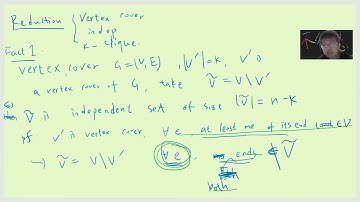 Reduction { Vertex cover
indep
k-clique.
Fact 1
vertex cover G=(V,E), |V'|=k, V' is
a vertex cover of G, take Ṽ = V\V'
Ṽ is independent set of size |Ṽ| = n-k
pf V' is vertex cover, ∀e, at least one of its end ∈ V'
→ Ṽ = V\V' ∀e, ends ∉ Ṽ
both